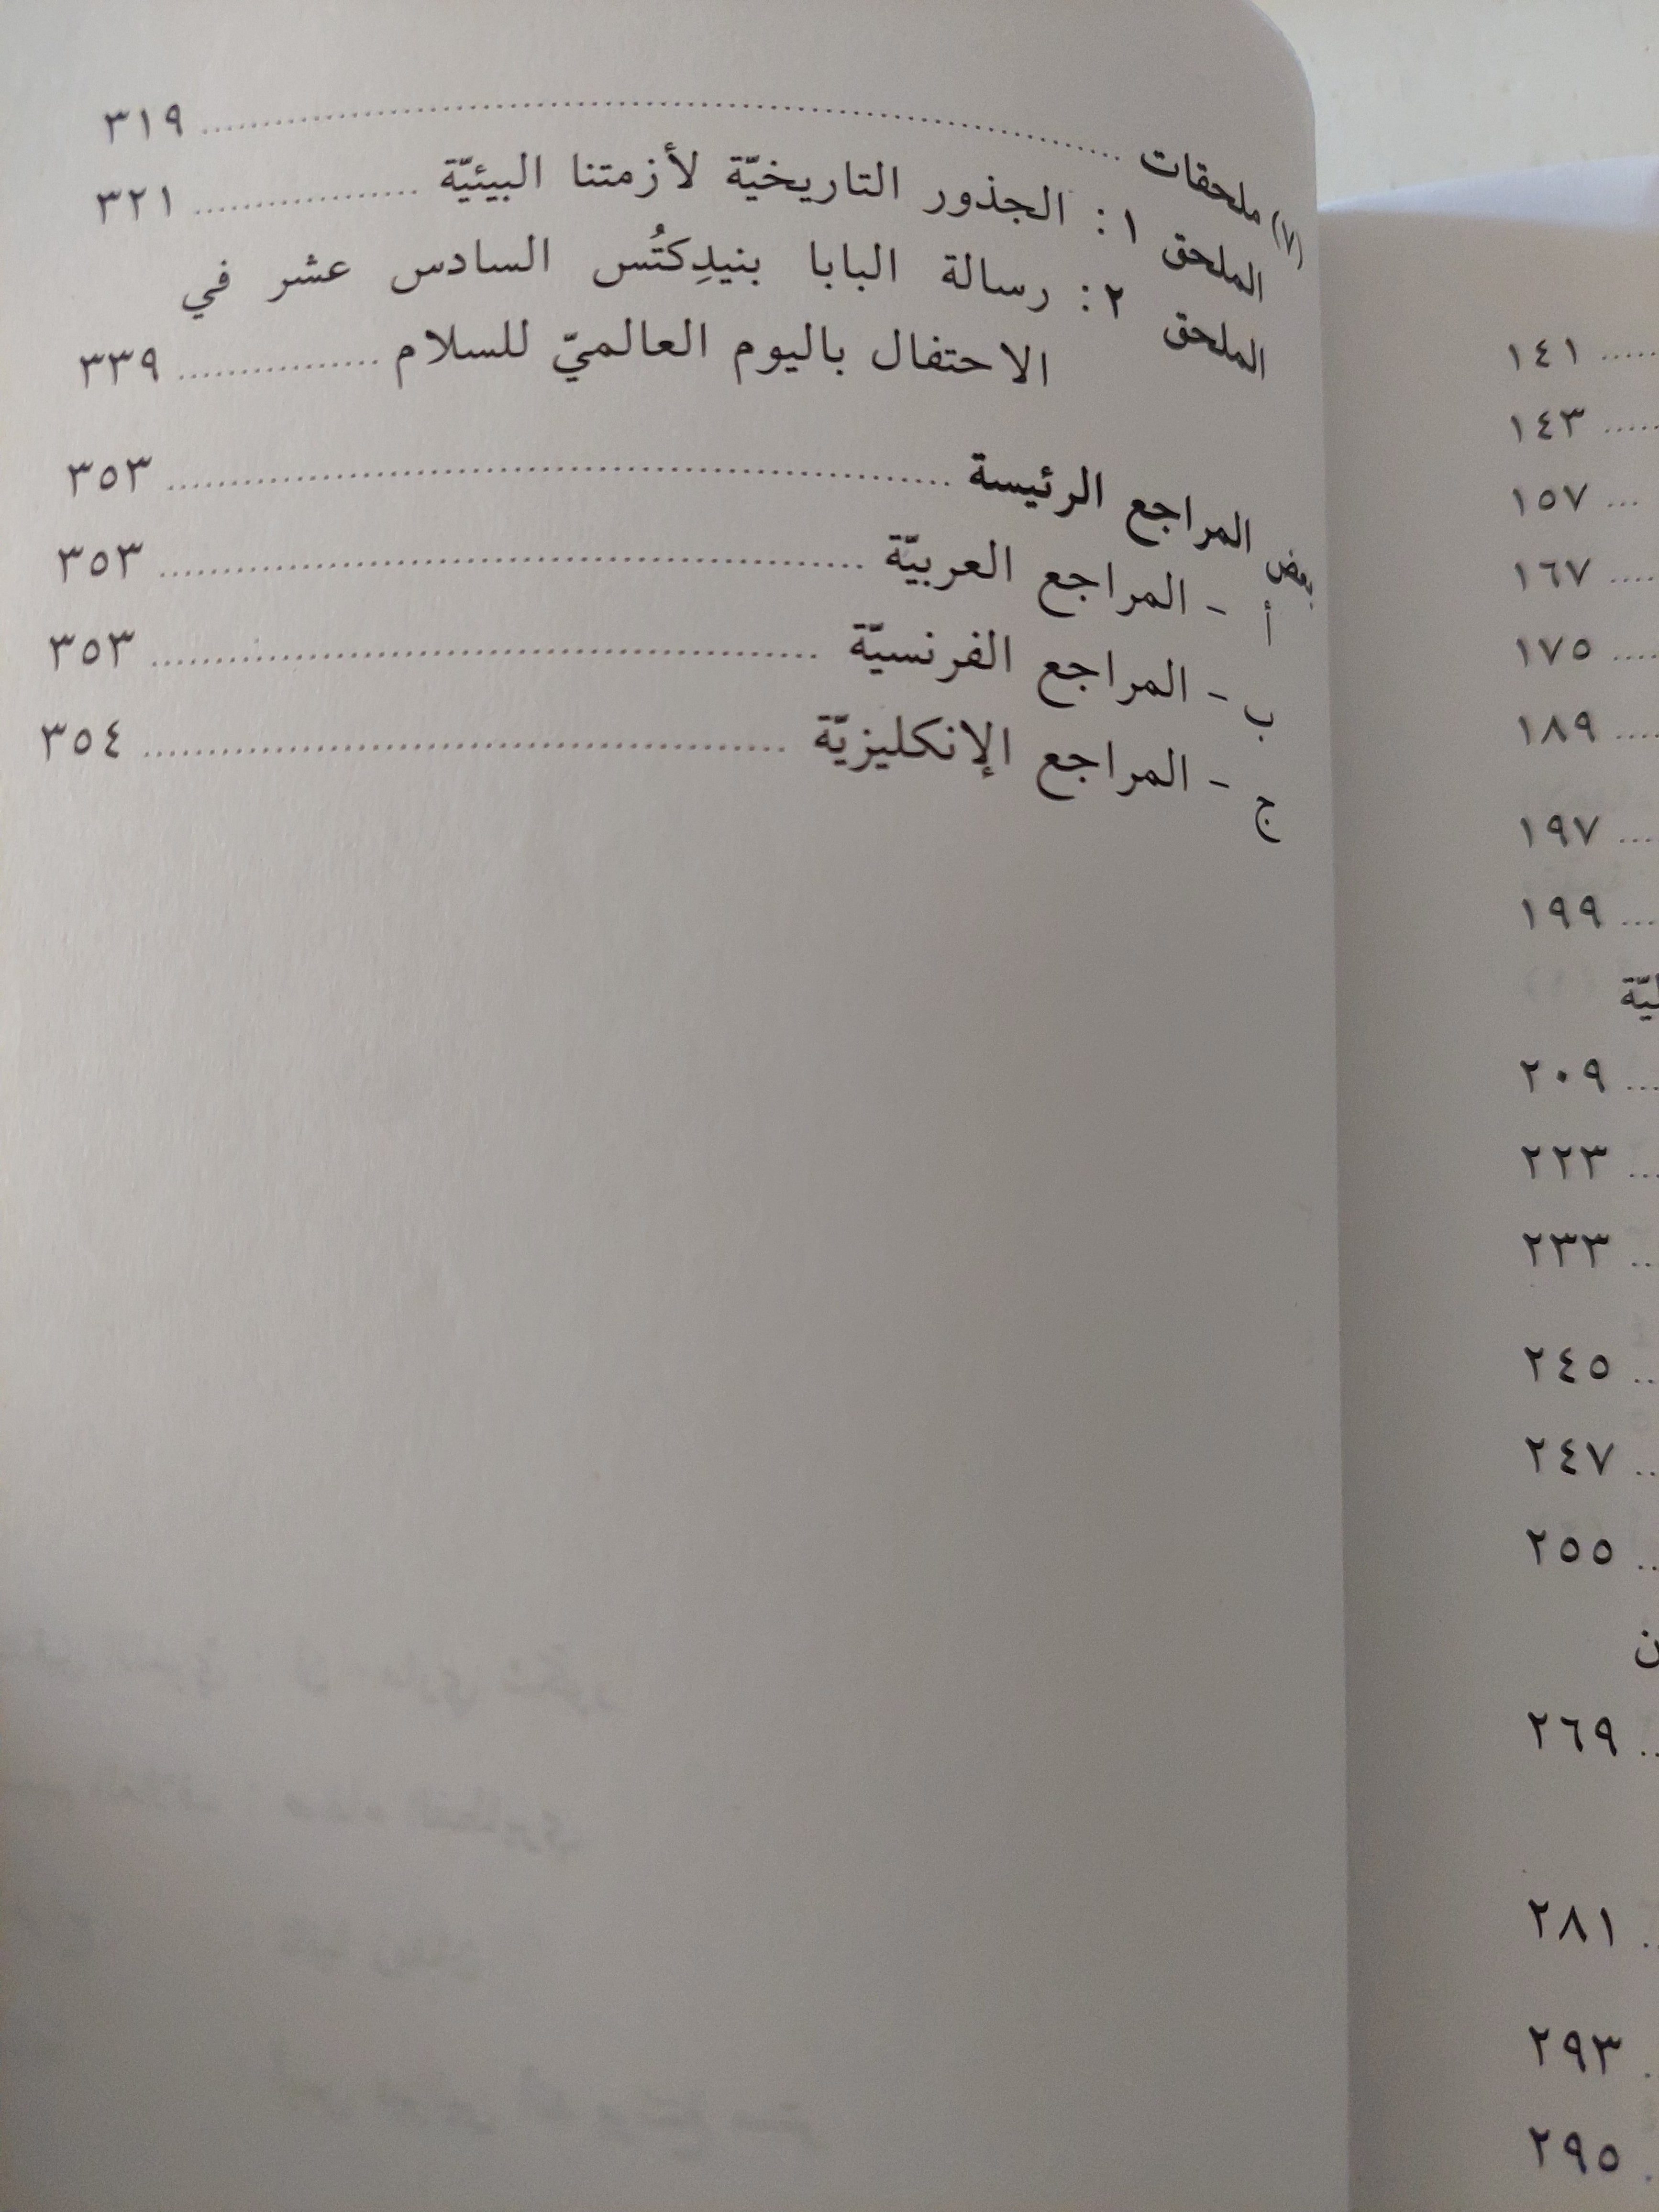 (٧) ملحقات ........ ٣١٩
الملحق ١: الجذور التاريخيّة لأزمتنا البيئيّة ........ ٣٢١
الملحق ٢: رسالة البابا بنيدِكتُس السادس عشر في
الاحتفال باليوم العالميّ للسلام ........ ٣٣٩
بعض المراجع الرئيسة ........ ٣٥٣
أ - المراجع العربيّة ........ ٣٥٣
ب - المراجع الفرنسيّة ........ ٣٥٣
ج - المراجع الإنكليزيّة ........ ٣٥٤
..... ١٤١
..... ١٤٣
... ١٥٧
.... ١٦٧
.... ١٧٥
.... ١٨٩
... ١٩٧
... ١٩٩
... ٢٠٩
... ٢٢٣
.. ٢٣٣
.. ٢٤٥
.. ٢٤٧
.. ٢٥٥
.. ٢٦٩
. ٢٨١
. ٢٩٣
. ٢٩٥